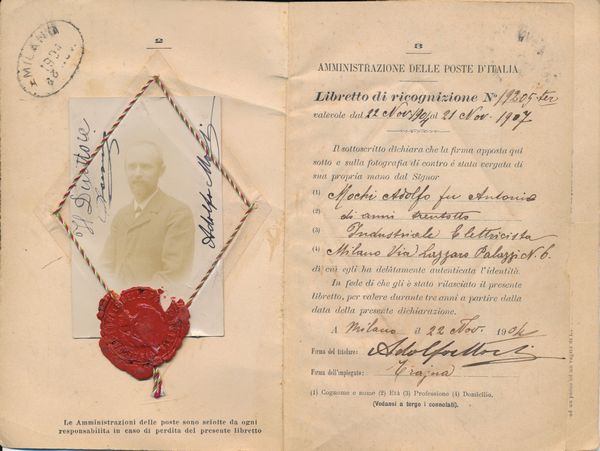 2
MILANO
Il Direttore
Adolfo Mochi
Le Amministrazioni delle poste sono sciolte da ogni
responsabilita in caso di perdita del presente libretto
3
AMMINISTRAZIONE DELLE POSTE D'ITALIA
Libretto di ricognizione N° 19205 ter
valevole dal 22 Nov 1904 al 21 Nov. 1907
Il sottoscritto dichiara che la firma apposta qui
sotto e sulla fotografia di contro è stata vergata di
sua propria mano dal Signor
(1) Mochi Adolfo fu Antonio
(2) di anni trentotto
(3) Industriale Elettricista
(4) Milano Via Lazzaro Palazzi N. 6.
di cui egli ha debitamente autenticata l'identità.
In fede di che gli è stato rilasciato il presente
libretto, per valere durante tre anni a partire dalla
data della presente dichiarazione.
A Milano il 22 Nov. 1904
Firma del titolare: Adolfo Mochi
Firma dell'impiegato:
(1) Cognome e nome (2) Età (3) Professione (4) Domicilio.
(Vedansi a tergo i connotati).